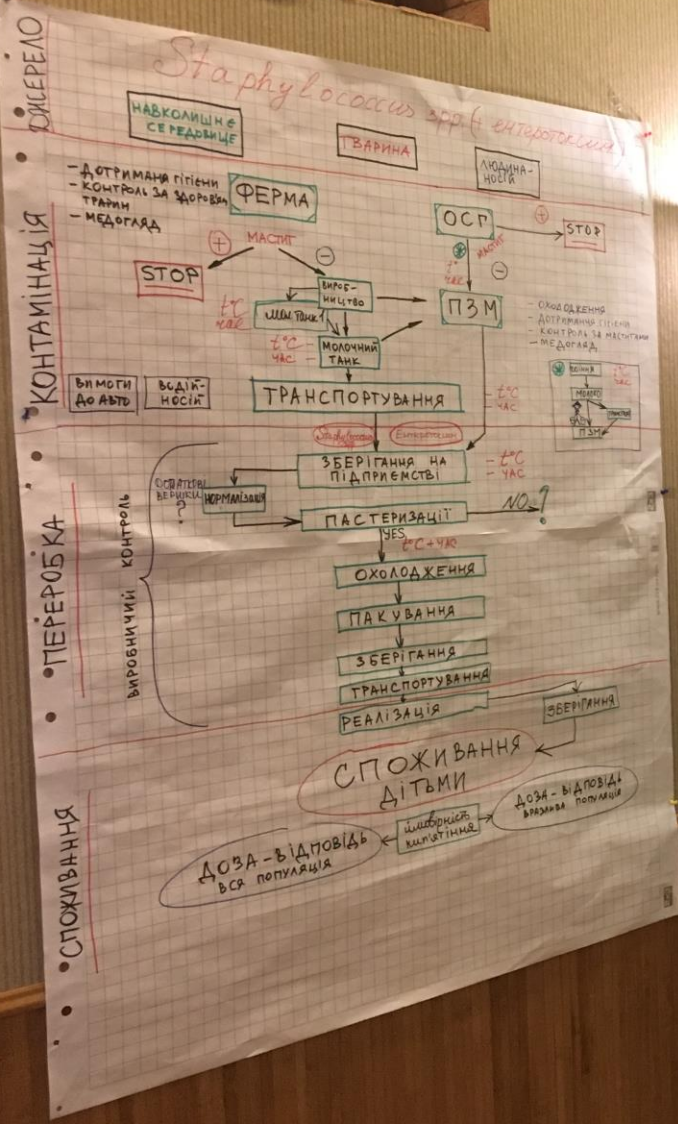 ДЖЕРЕЛО
Staphylococcus spp. (+ ентеротоксин)
НАВКОЛИШНЄ
СЕРЕДОВИЩЕ
ТВАРИНА
ЛЮДИНА-
НОСІЙ
КОНТАМІНАЦІЯ
– ДОТРИМАНЯ ГІГІЄНИ
– КОНТРОЛЬ ЗА ЗДОРОВ'ЯМ
ТРАРИН
– МЕДОГЛЯД
ФЕРМА
ОСГ
+
STOP
МАСТИТ
+
–
STOP
МАСТИТ
t°
ЧАС
–
ВИРОБ-
НИЦТВО
t°C
ЧАС
ТАНК 1
ПЗМ
– ОХОЛОДЖЕННЯ
– ДОТРИМАННЯ ГІГІЄНИ
– КОНТРОЛЬ ЗА МАСТИТАМИ
– МЕДОГЛЯД
t°C
– ЧАС –
МОЛОЧНИЙ
ТАНК
t°C
ЧАС
МОЛОКО
ПЗМ
ВИМОГИ
ДО АВТО
ВОДІЙ-
НОСІЙ
ТРАНСПОРТУВАННЯ
– t°C
– ЧАС
Staphylococcus
Ентеротоксин
ПЕРЕРОБКА
ВИРОБНИЧИЙ КОНТРОЛЬ
ЗБЕРІГАННЯ НА
ПІДПРИЄМСТВІ
– t°C
– ЧАС
ОСТАТКОВІ
ВЕРШКИ
?
НОРМАЛІЗАЦІЯ
ПАСТЕРИЗАЦІЇ
NO ?
YES
t°C + ЧАС
ОХОЛОДЖЕННЯ
ПАКУВАННЯ
ЗБЕРІГАННЯ
ТРАНСПОРТУВАННЯ
РЕАЛІЗАЦІЯ
ЗБЕРІГАННЯ
СПОЖИВАННЯ
СПОЖИВАННЯ
ДІТЬМИ
ДОЗА – ВІДПОВІДЬ
ВРАЗЛИВА ПОПУЛЯЦІЯ
ймовірність
кип'ятіння
ДОЗА – ВІДПОВІДЬ
ВСЯ ПОПУЛЯЦІЯ